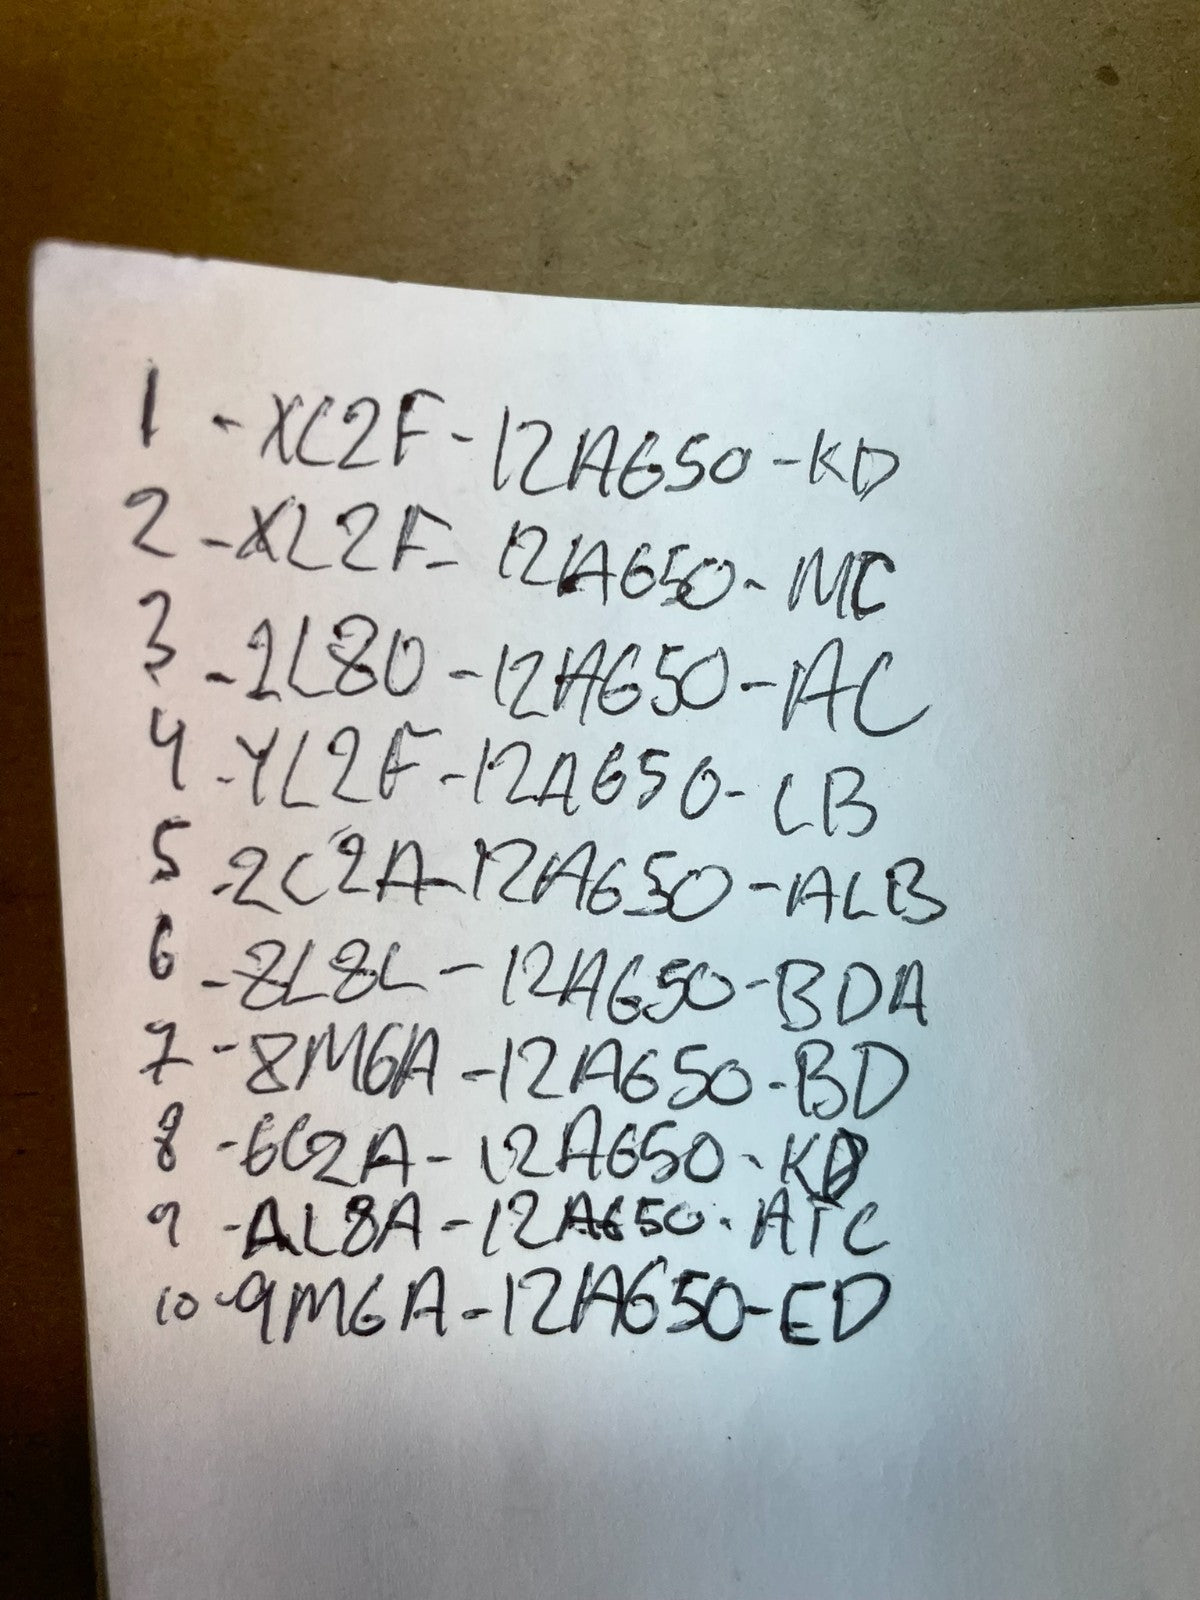 1 - XC2F - 12A650 - KD
2 - XL2F - 12A650 - MC
3 - 2L80 - 12A650 - AC
4 - YL2F - 12A650 - LB
5 - 2C2A - 12A650 - ALB
6 - 8L8L - 12A650 - BDA
7 - 8M6A - 12A650 - BD
8 - 6C2A - 12A650 - KD
9 - AL8A - 12A650 - ATC
10 - 9M6A - 12A650 - ED